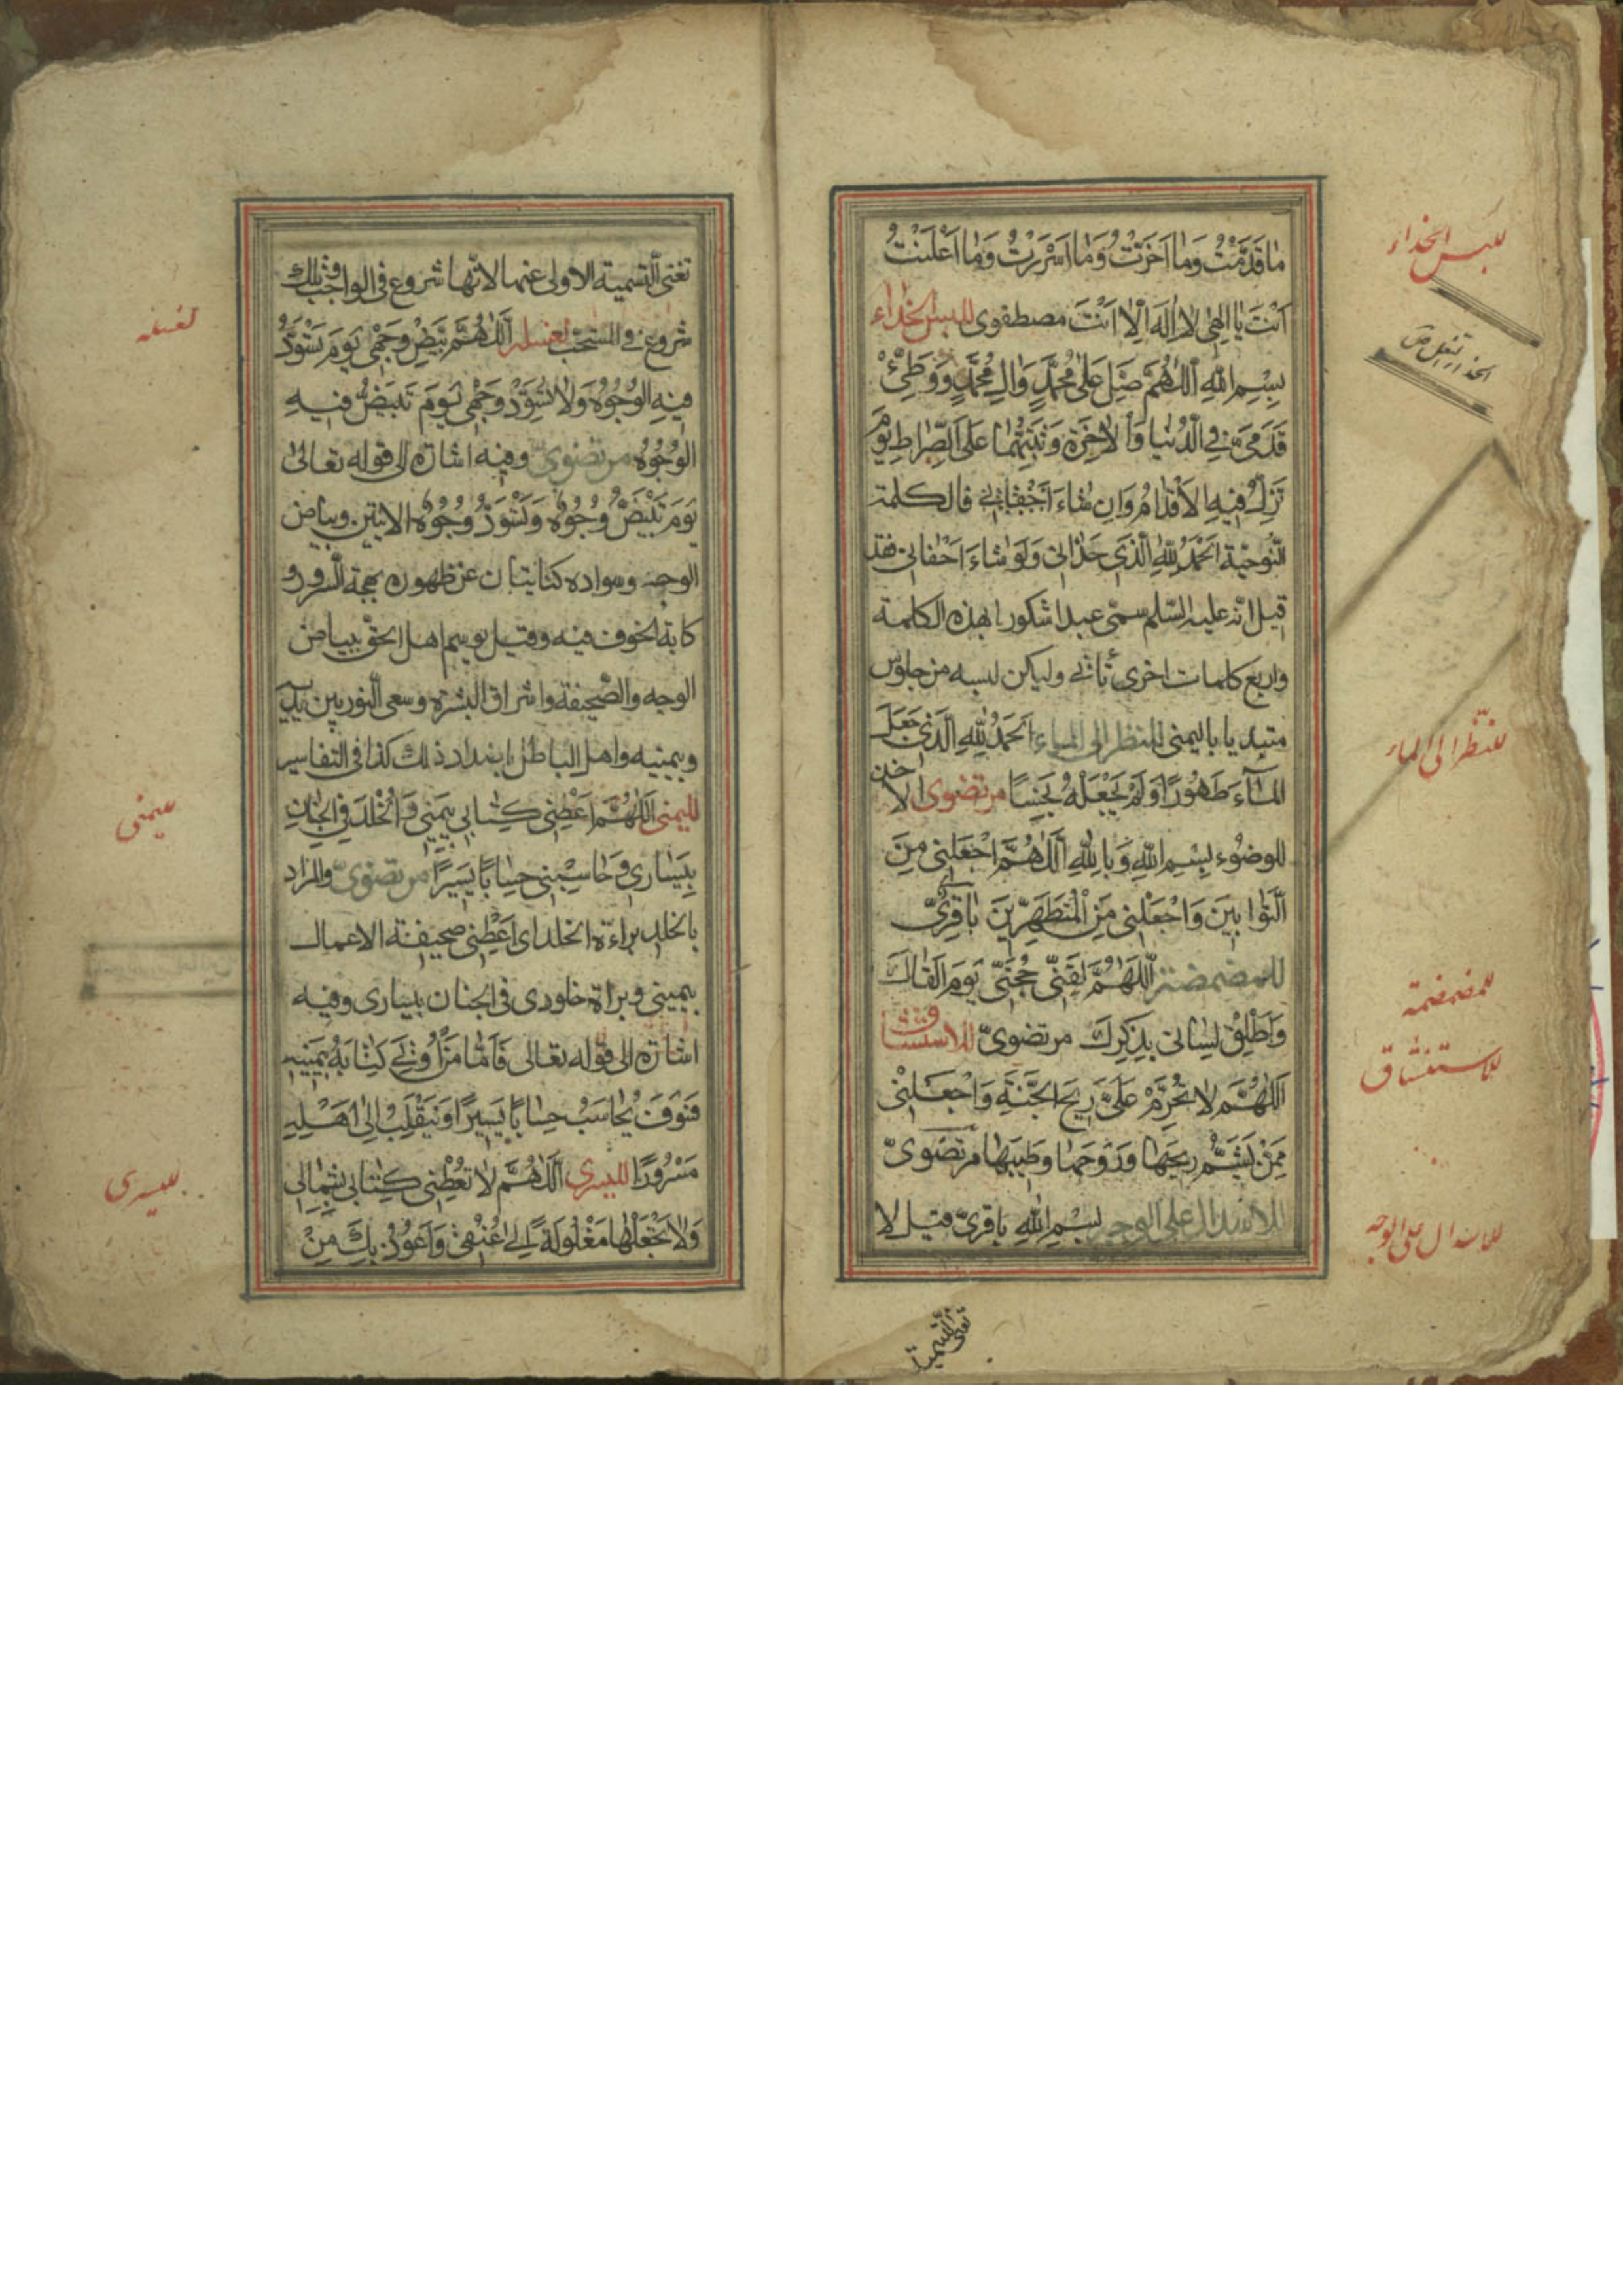 مٰا قَدَّمْتُ وَمٰا اَخَّرْتُ وَمٰا اَسْرَرْتُ وَمٰا اَعْلَنْتُ
اَنْتَ يٰا اِلٰهِى لٰا اِلٰهَ اِلّٰا اَنْتَ مصطفوى للبس الحذاء
بِسْمِ اللّٰهِ اَللّٰهُمَّ صَلِّ عَلٰى مُحَمَّدٍ وَاٰلِ مُحَمَّدٍ وَوَطِّئْ
قَدَمَىَّ فِى الدُّنْيٰا وَالْاٰخِرَةِ وَثَبِّتْهُمٰا عَلَى الصِّرٰاطِ يَوْمَ
تَزِلُّ فِيهِ الْاَقْدٰامُ وَاِن شٰاءَ قال كلمة
النُّوحيّة اَلْحَمْدُ لِلّٰهِ الَّذِى حَذٰانِى وَلَوْ شٰاءَ اَحْفٰانِى فقد
قيل انّه عليه السّلم سمّى عبدا شكورا بهذه الكلمة
واربع كلمات اخرى تأتى وليكن لبسه من جلوس
مبتديا باليمنى للنظر الى الماء اَلْحَمْدُ لِلّٰهِ الَّذِى جَعَلَ
الْمٰاءَ طَهُورًا وَلَمْ يَجْعَلْهُ نَجِسًا مرتضوى الاخذ
للوضوء بِسْمِ اللّٰهِ وَبِاللّٰهِ اَللّٰهُمَّ اجْعَلْنِى مِنَ
التَّوّٰابِينَ وَاجْعَلْنِى مِنَ الْمُتَطَهِّرِينَ باقرىّ
للمضمضة اَللّٰهُمَّ لَقِّنِّى حُجَّتِى يَوْمَ اَلْقٰاكَ
وَاَطْلِقْ لِسٰانِى بِذِكْرِكَ مرتضوىّ للاستنشاق
اَللّٰهُمَّ لٰا تُحَرِّمْ عَلَىَّ رِيحَ الْجَنَّةِ وَاجْعَلْنِى
مِمَّنْ يَشَمُّ رِيحَهٰا وَرَوْحَهٰا وَطِيبَهٰا مرتضوىّ
للاسدال على الوجه بِسْمِ اللّٰهِ باقرىّ قيل لا
تغنى التسمية
للبس الحذاء
للنّظر الى الماء
للمضمضة
للاستنشاق
للاسدال على الوجه
تغنى التّسمية الاولى عنها لانّها شروع فى الواجب وتلك
شروع فى المستحب لغسله اَللّٰهُمَّ بَيِّضْ وَجْهِى يَوْمَ تَسْوَدُّ
فِيهِ الْوُجُوهُ وَلٰا تُسَوِّدْ وَجْهِى يَوْمَ تَبْيَضُّ فِيهِ
الْوُجُوهُ مرتضوىّ وفيه اشارة الى قوله تعالى
يَوْمَ تَبْيَضُّ وُجُوهٌ وَتَسْوَدُّ وُجُوهٌ الايتين وبياض
الوجه وسواده كنايتان عن ظهور بهجة السرور و
كابة الخوف فيه وقيل يوسم اهل الحقّ ببياض
الوجه والصّحيفة واشراق البشرة وسعى النّور بين يديه
وبيمينه واهل الباطل باضداد ذلك كذا فى التفاسير
لليمنى اَللّٰهُمَّ اَعْطِنِى كِتٰابِى بِيَمِينِى وَالْخُلْدَ فِى الْجِنٰانِ
بِيَسٰارِى وَحٰاسِبْنِى حِسٰابًا يَسِيرًا مرتضوىّ والمراد
بالخلد براءة الخلد اى اَعْطِنِى صحيفة الاعمال
بيمينى وبراة خلودى فى الجنان بيسارى وفيه
اشارة الى قوله تعالى فَاَمّٰا مَنْ اُوتِىَ كِتٰابَهُ بِيَمِينِهِ
فَسَوْفَ يُحٰاسَبُ حِسٰابًا يَسِيرًا وَيَنْقَلِبُ اِلٰى اَهْلِهِ
مَسْرُورًا لليسرى اَللّٰهُمَّ لٰا تُعْطِنِى كِتٰابِى بِشِمٰالِى
وَلٰا تَجْعَلْهٰا مَغْلُولَةً اِلٰى عُنُقِى وَاَعُوذُ بِكَ مِنْ
لغسله
لليمنى
لليسرى